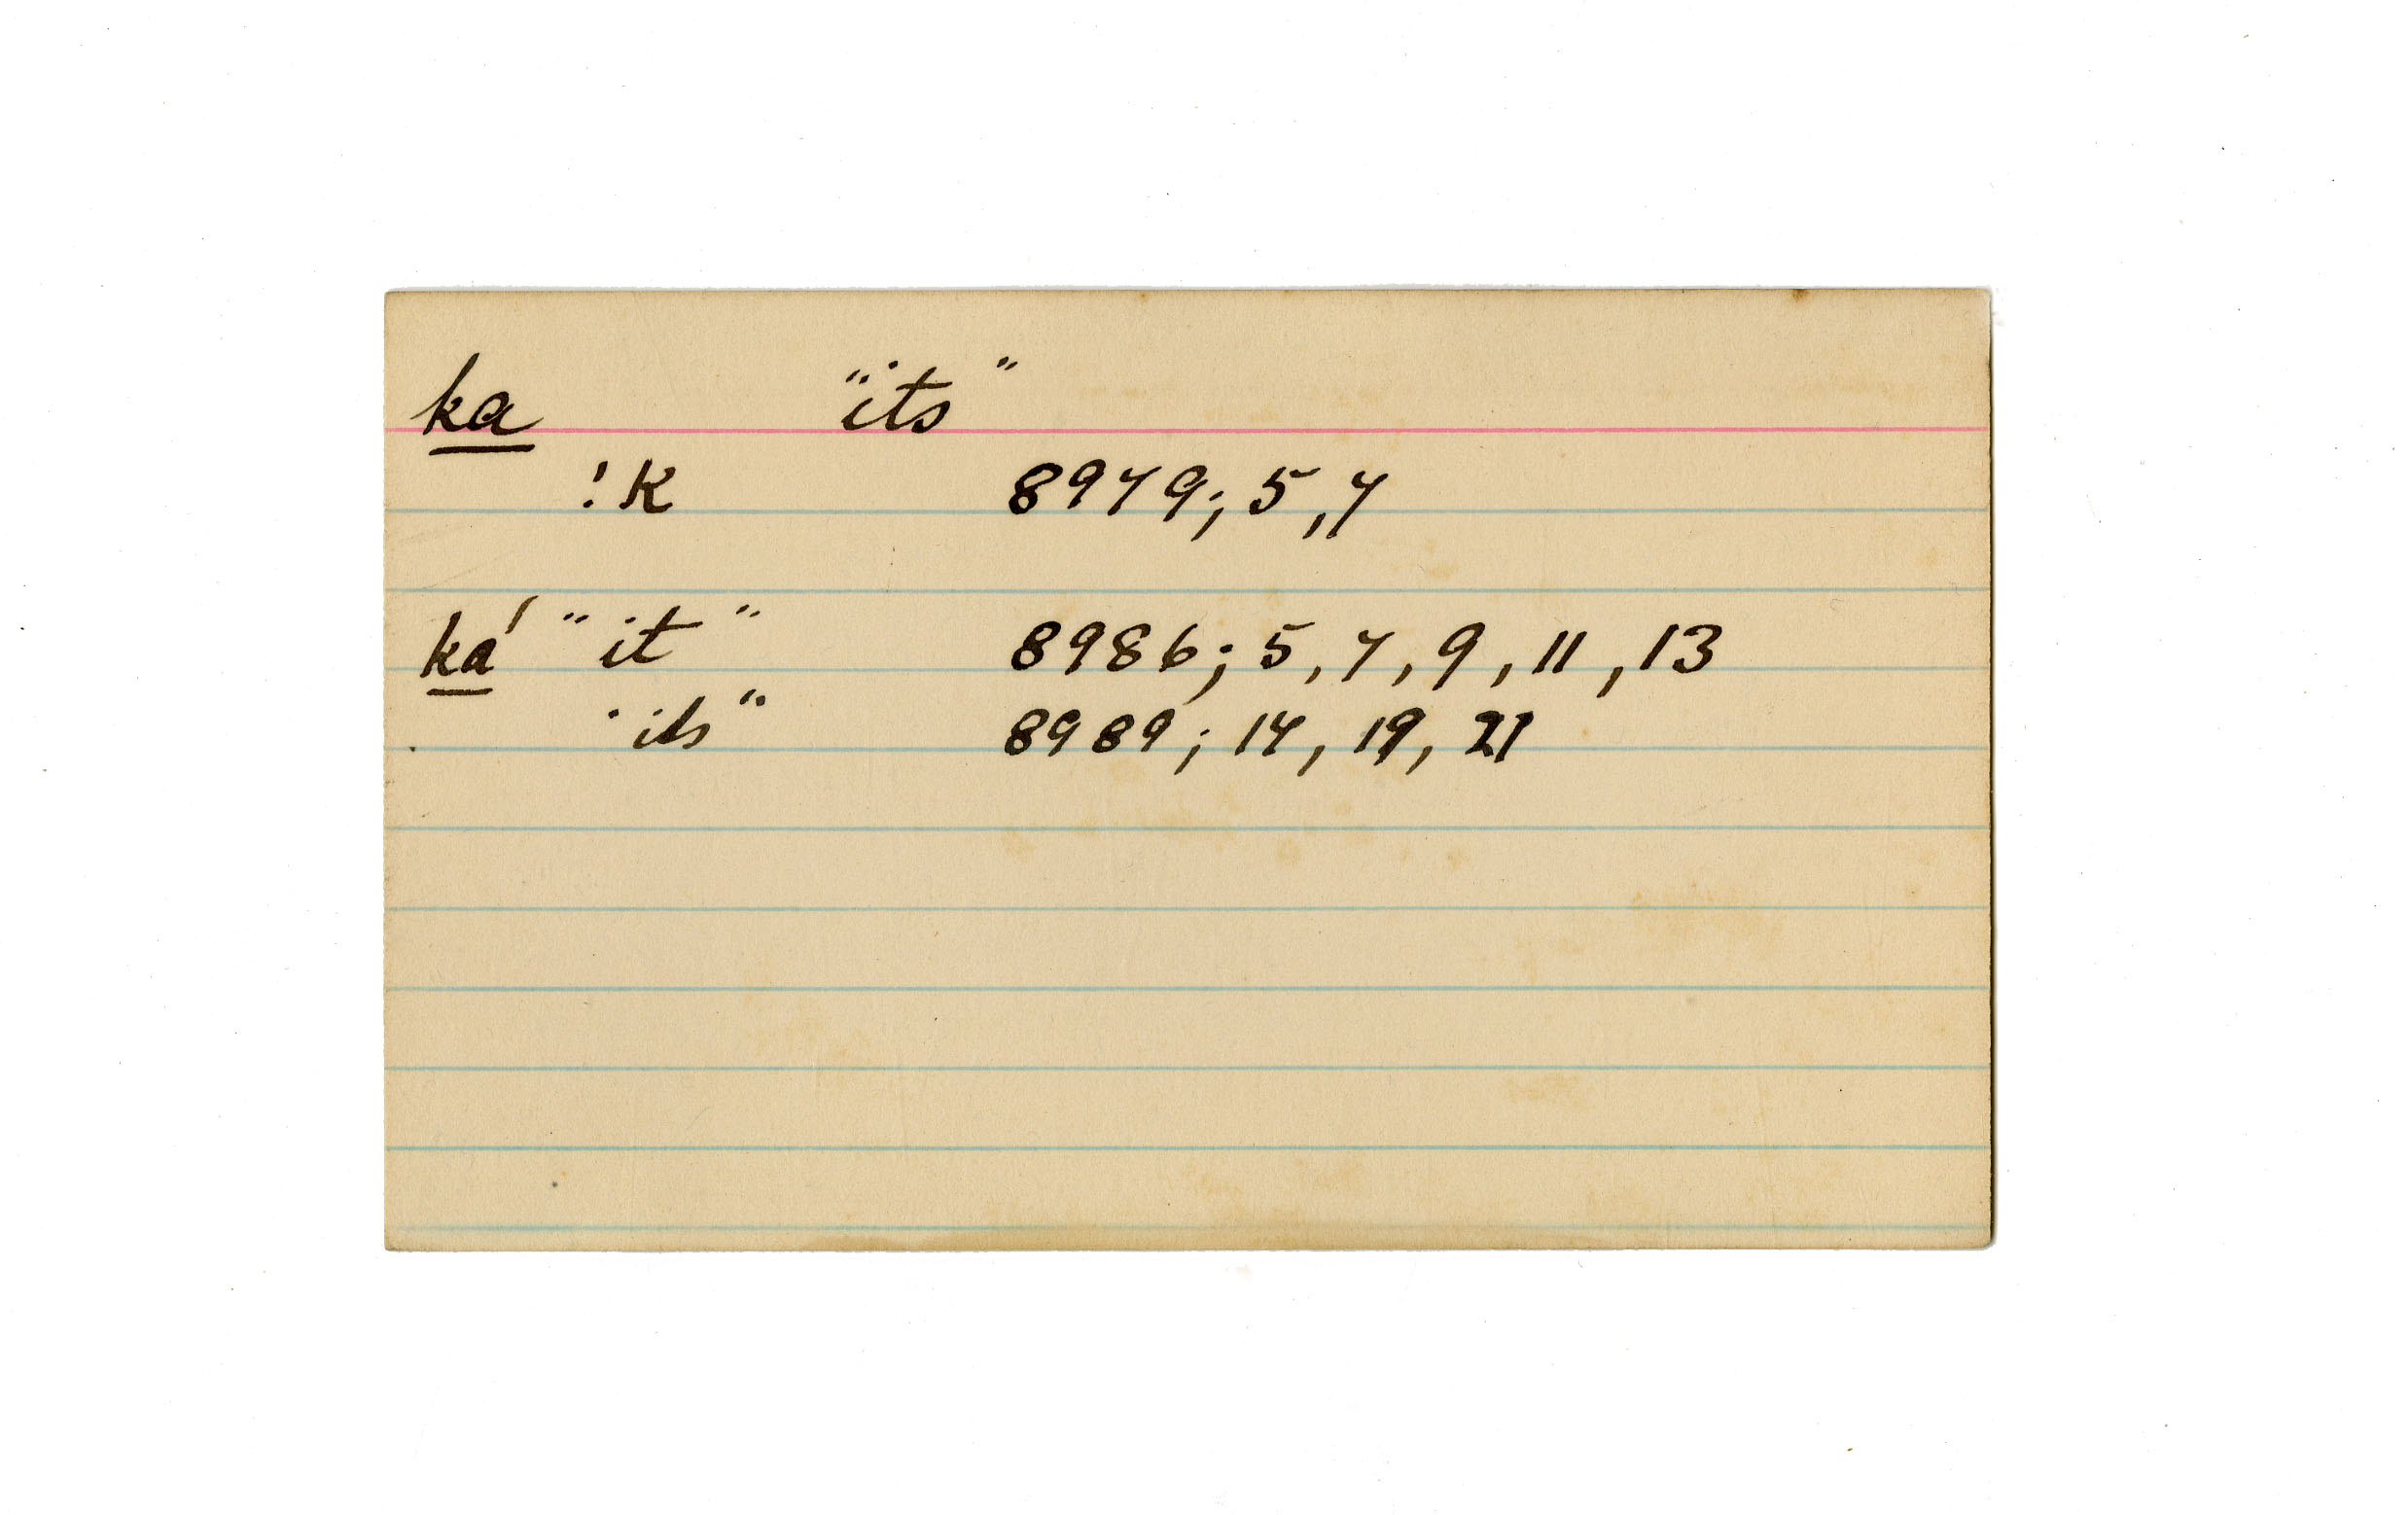 ka "its"
!K 8979; 5, 7
ká "it" 8986; 5, 7, 9, 11, 13
"its" 8989; 14, 19, 21